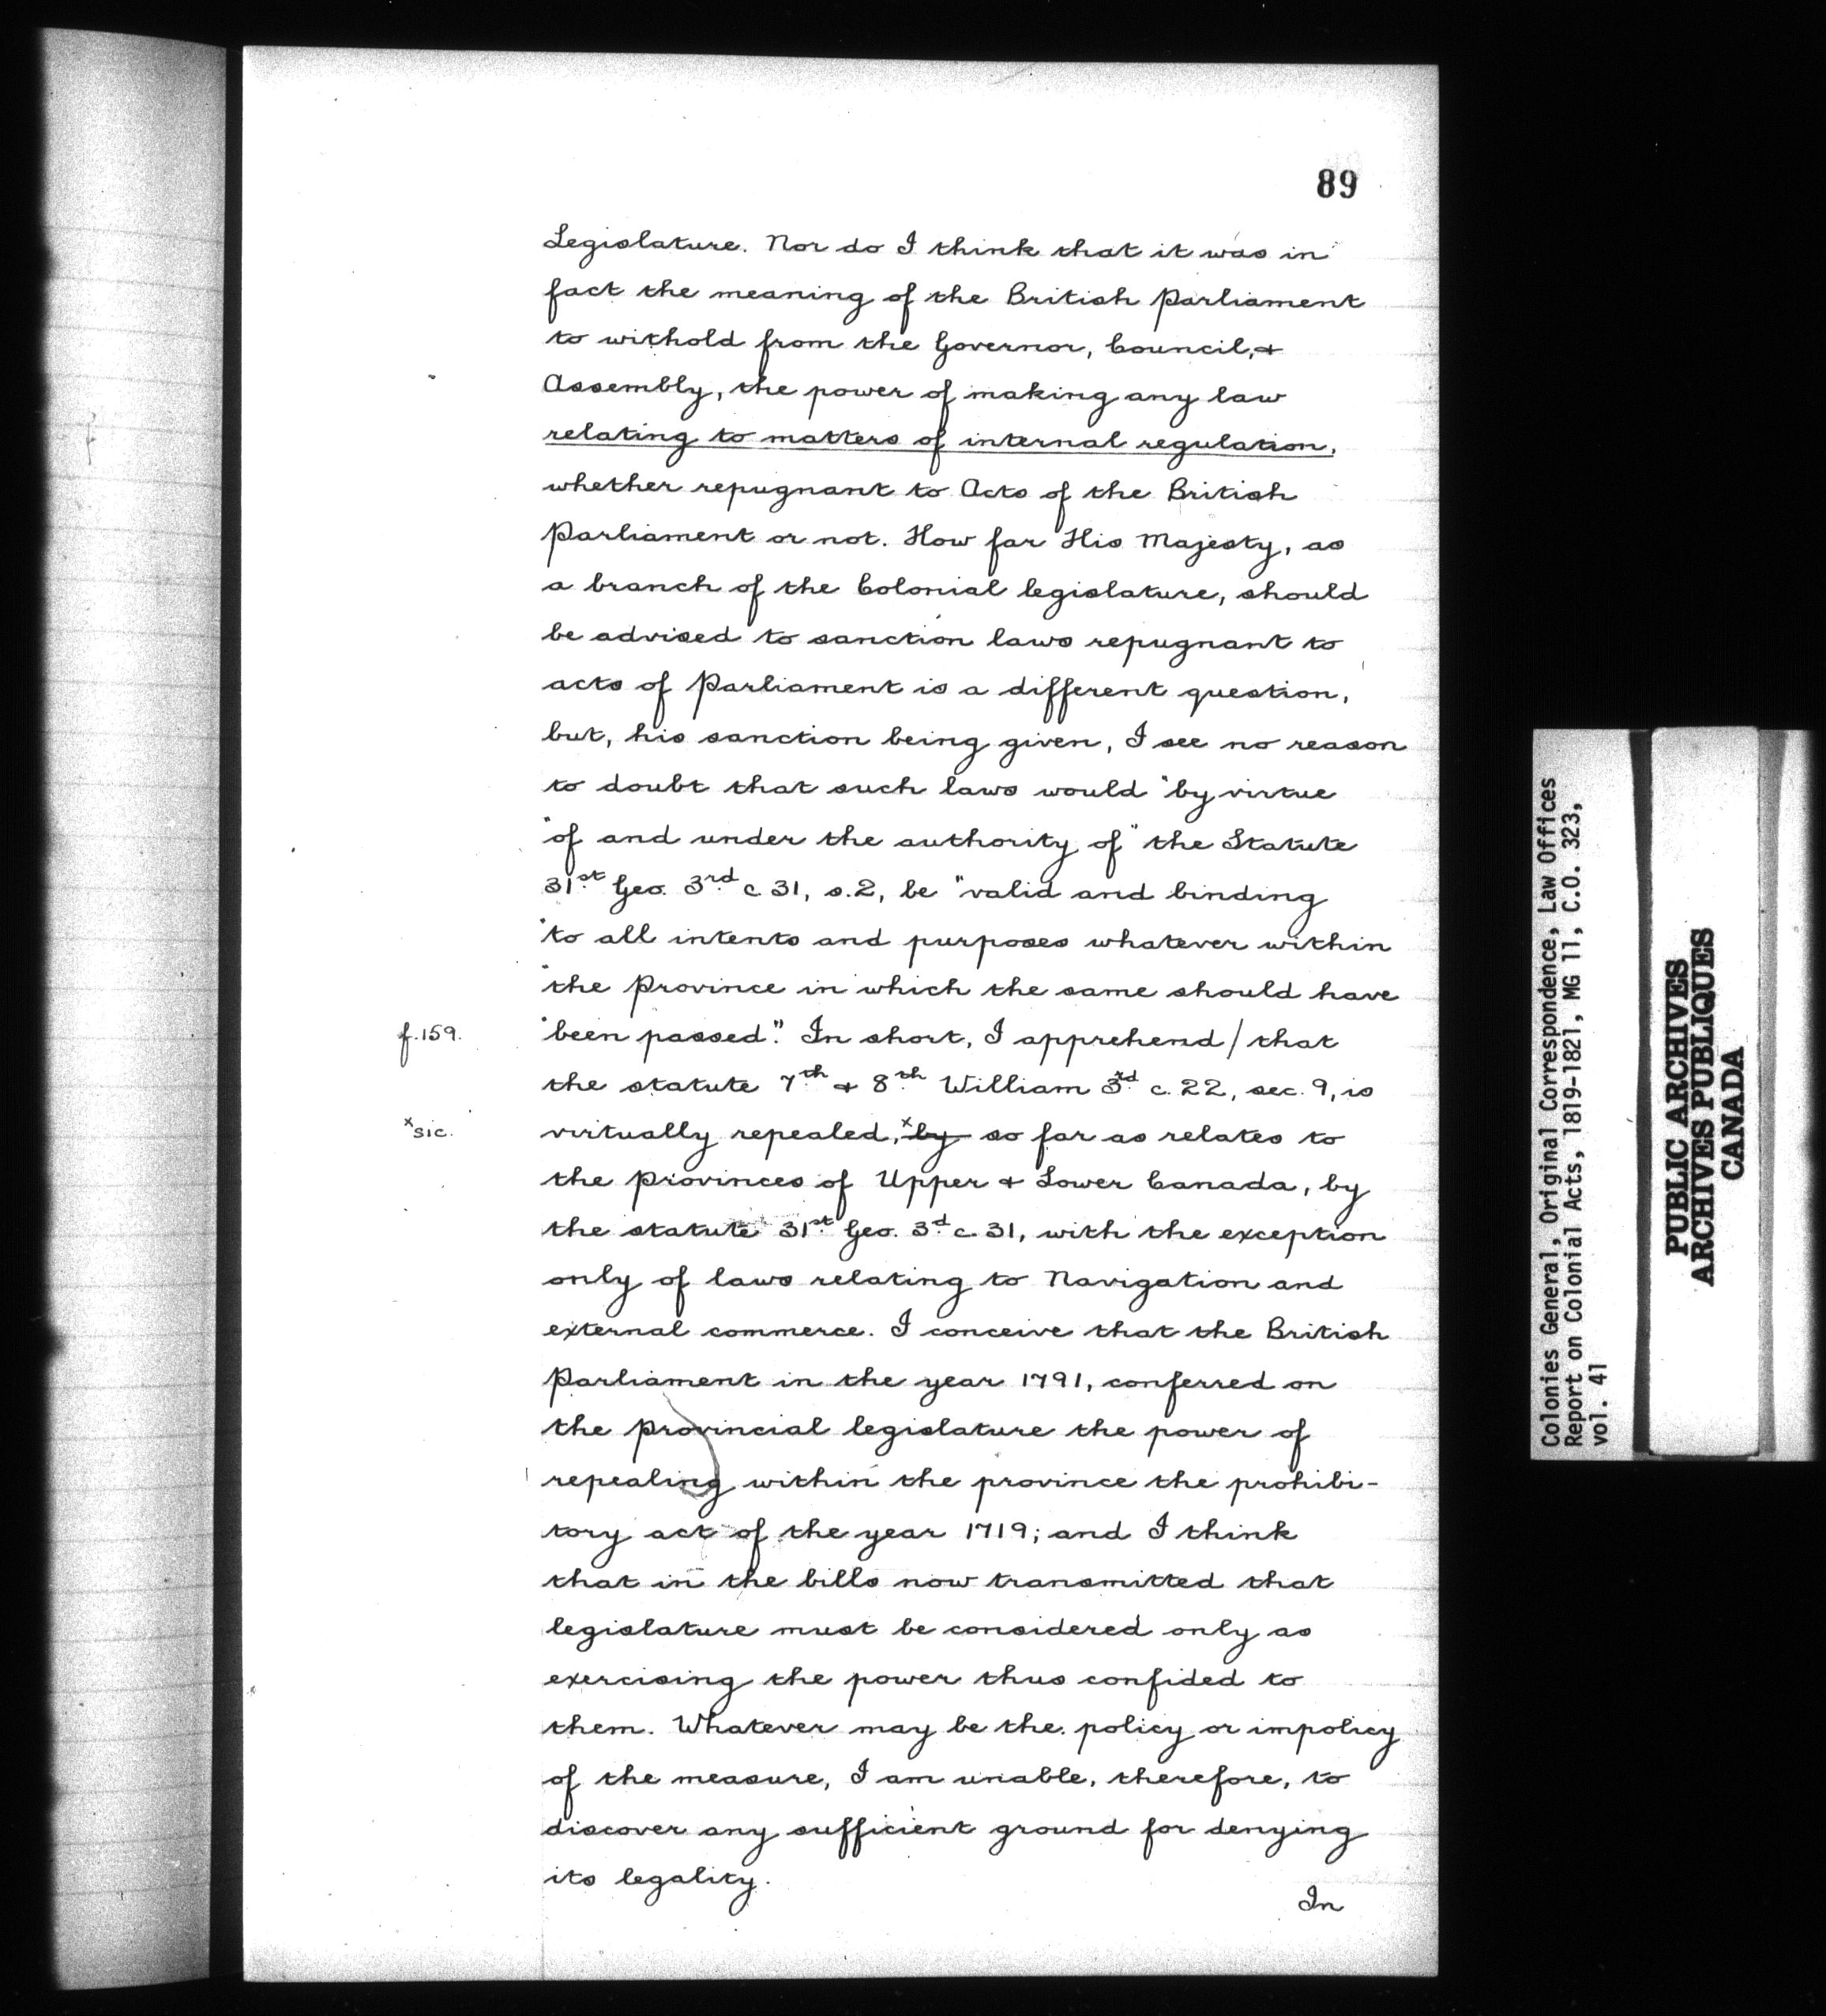 89
Legislature. Nor do I think that it was in
fact the meaning of the British Parliament
to withold from the Governor, Council, &
Assembly, the power of making any law
relating to matters of internal regulation,
whether repugnant to Acts of the British
Parliament or not. How far His Majesty, as
a branch of the Colonial legislature, should
be advised to sanction laws repugnant to
acts of Parliament is a different question,
but, his sanction being given, I see no reason
to doubt that such laws would "by virtue
"of and under the authority of" the Statute
31st Geo. 3rd c 31, s.2, be "valid and binding
"to all intents and purposes whatever within
"the Province in which the same should have
f.159. "been passed". In short, I apprehend / that
the statute 7th & 8th William 3rd c. 22, sec. 9, is
xsic. virtually repealed, xby so far as relates to
the Provinces of Upper & Lower Canada, by
the statute 31st Geo. 3d c. 31, with the exception
only of laws relating to Navigation and
external commerce. I conceive that the British
Parliament in the year 1791, conferred on
the Provincial legislature the power of
repealing within the province the prohibi-
tory act of the year 1719; and I think
that in the bills now transmitted that
legislature must be considered only as
exercising the power thus confided to
them. Whatever may be the policy or impolicy
of the measure, I am unable, therefore, to
discover any sufficient ground for denying
its legality.
In
Colonies General, Original Correspondence, Law Offices
Report on Colonial Acts, 1819-1821, MG 11, C.O. 323,
vol. 41
PUBLIC ARCHIVES
ARCHIVES PUBLIQUES
CANADA